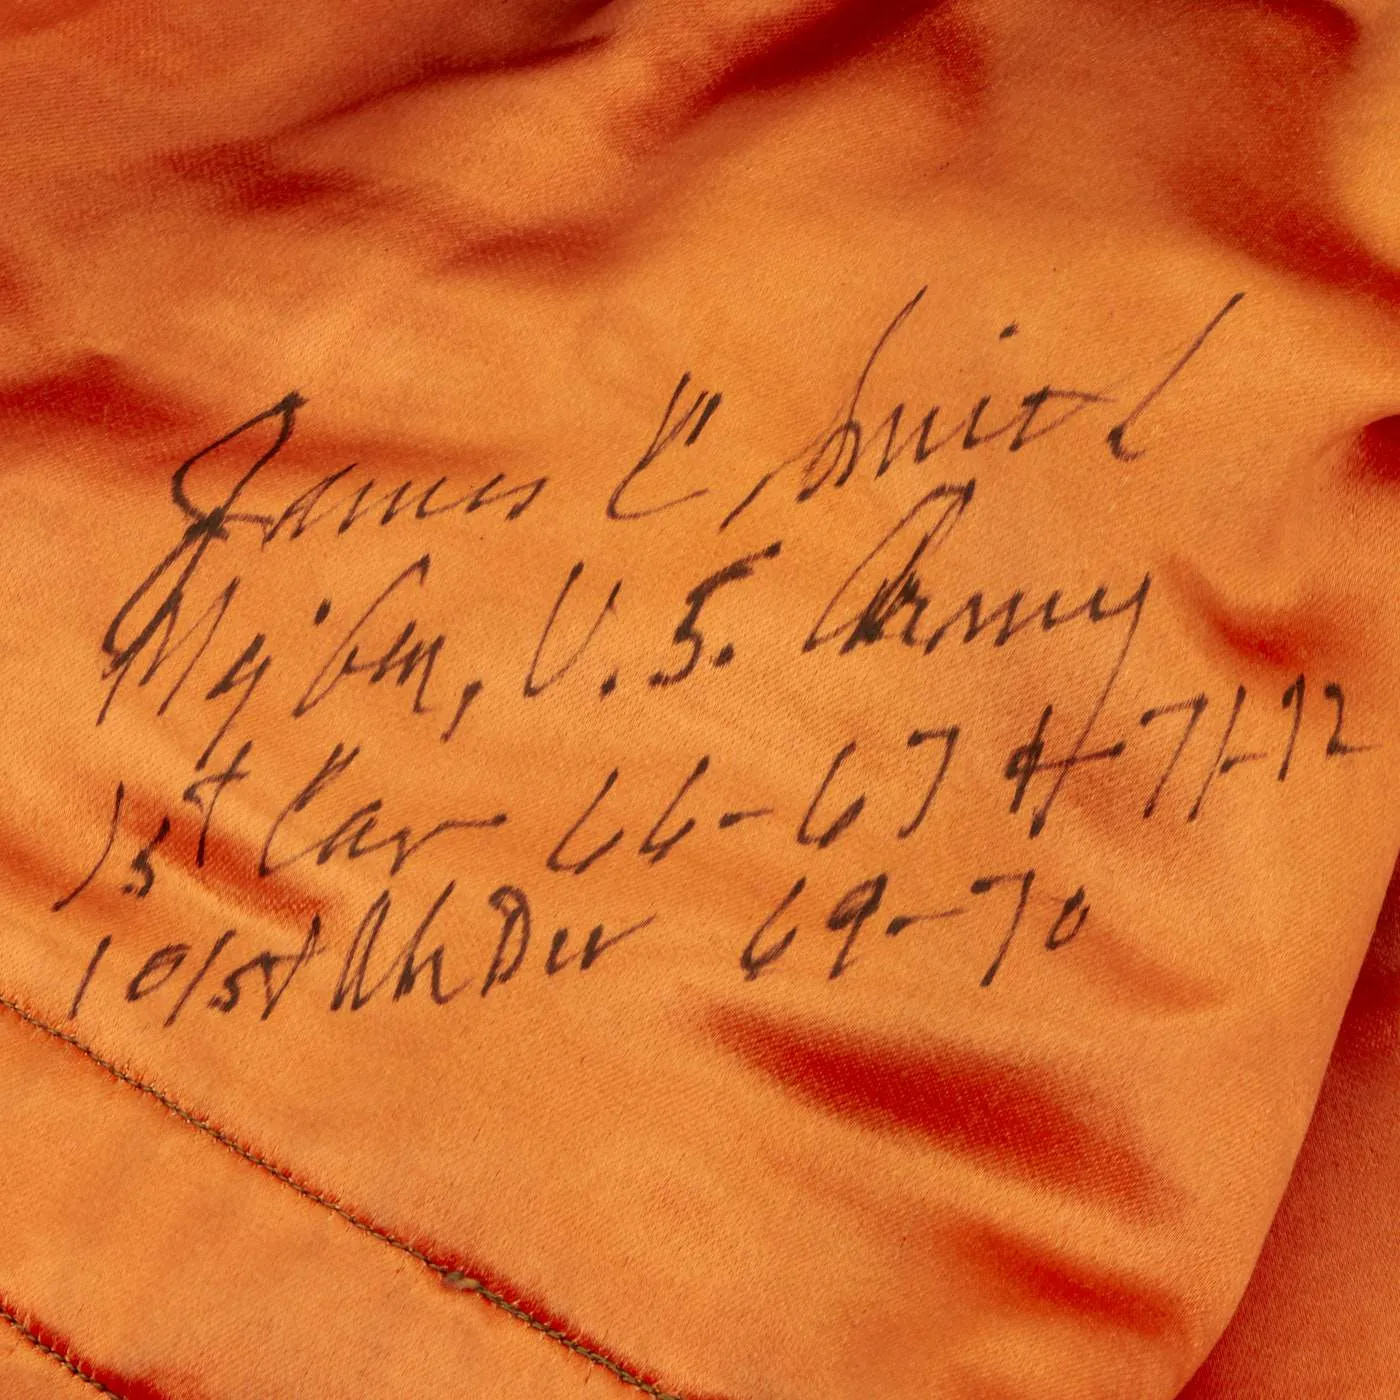 James C. Smith
Maj Gen, U.S. Army
1st Cav 66-67 & 71-72
101st Abn Div 69-70